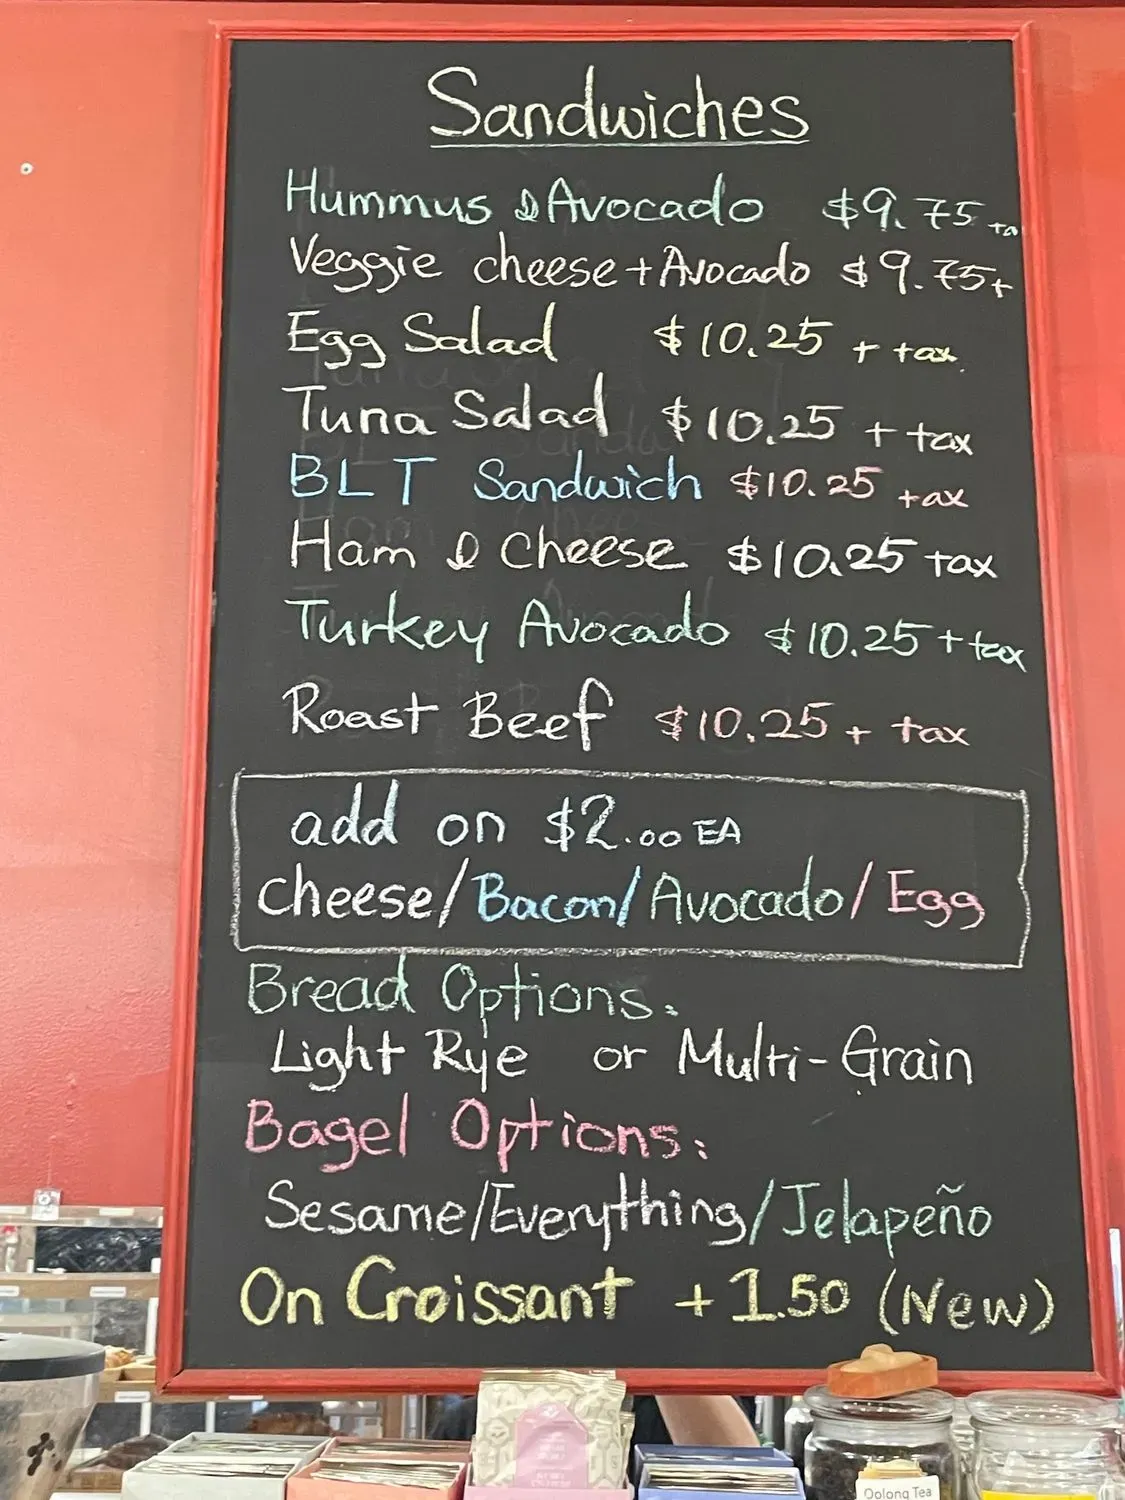 Sandwiches
Hummus & Avocado $9.75 + ta
Veggie cheese + Avocado $9.75 +
Egg Salad $10.25 + tax
Tuna Salad $10.25 + tax
BLT Sandwich $10.25 + tax
Ham & Cheese $10.25 tax
Turkey Avocado $10.25 + tax
Roast Beef $10.25 + tax
add on $2.00 EA
cheese/Bacon/Avocado/Egg
Bread Options:
Light Rye or Multi-Grain
Bagel Options:
Sesame/Everything/Jelapeño
On Croissant +1.50 (New)
Oolong Tea